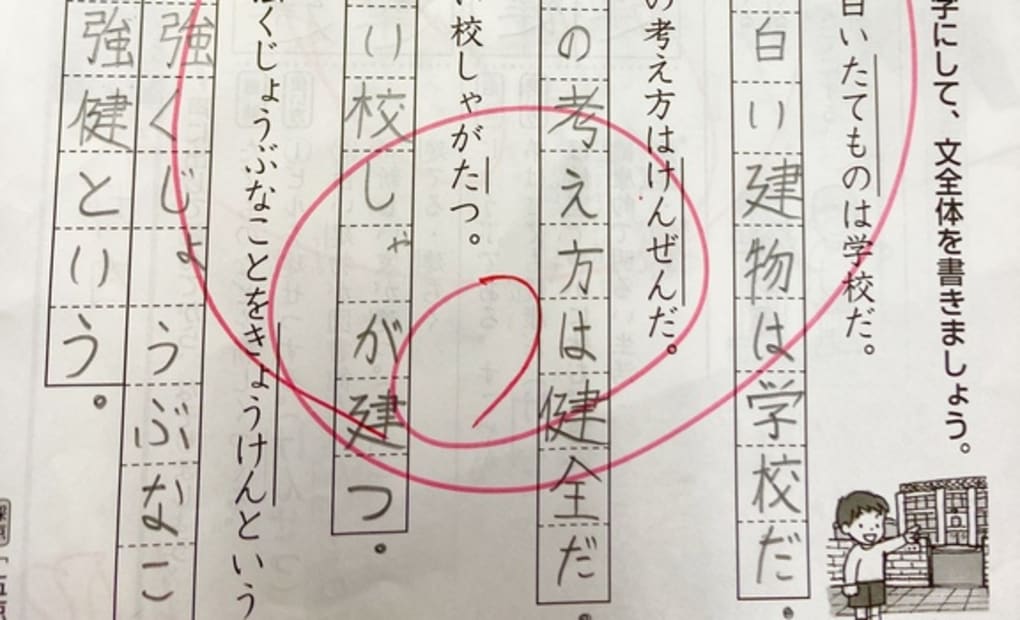 字にして、文全体を書きましょう。
白いたてものは学校だ。
白い建物は学校だ。
の考え方はけんぜんだ。
の考え方は健全だ。
い校しゃがたつ。
い校しゃが建つ。
強くじょうぶなことをきょうけんという
強くじょうぶなこ
強健という。